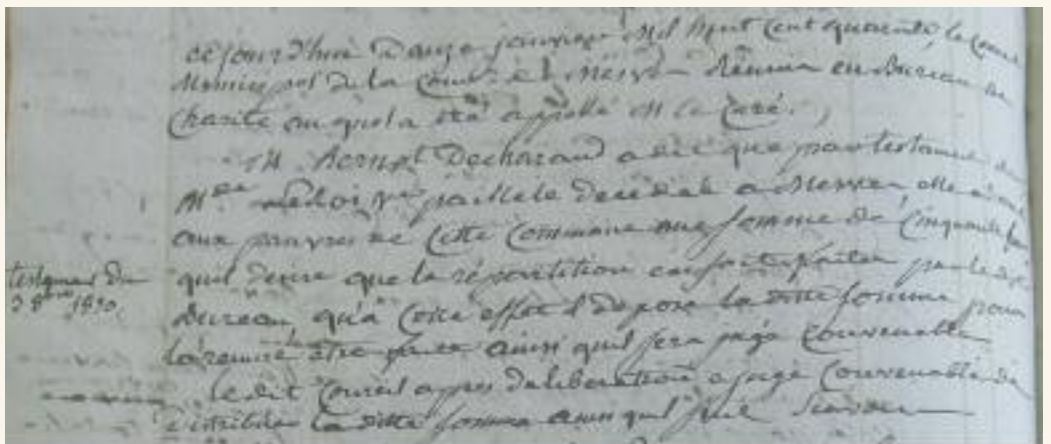 ce jourd'hui douze janvier mil huit cent quarante, le Conseil
Municipal de la Comne de Messon Réunis en Bureau de
Charité au quel a été appellé M. le Curé.
M. Decharand a dit que par testament de
Mde Ve paillele decédée a elle a
aux pauvres de cette Commune une somme de Cinquante
quil desire que la répartition en soit faitte par le dit
Bureau, qu'à cette effet il depose la ditte somme pour
être faite ainsi quil sera jugé Convenable
le dit Conseil apres deliberation a jugé Convenable de
distribuer la ditte somme ainsi quil suit
testament du
1830.